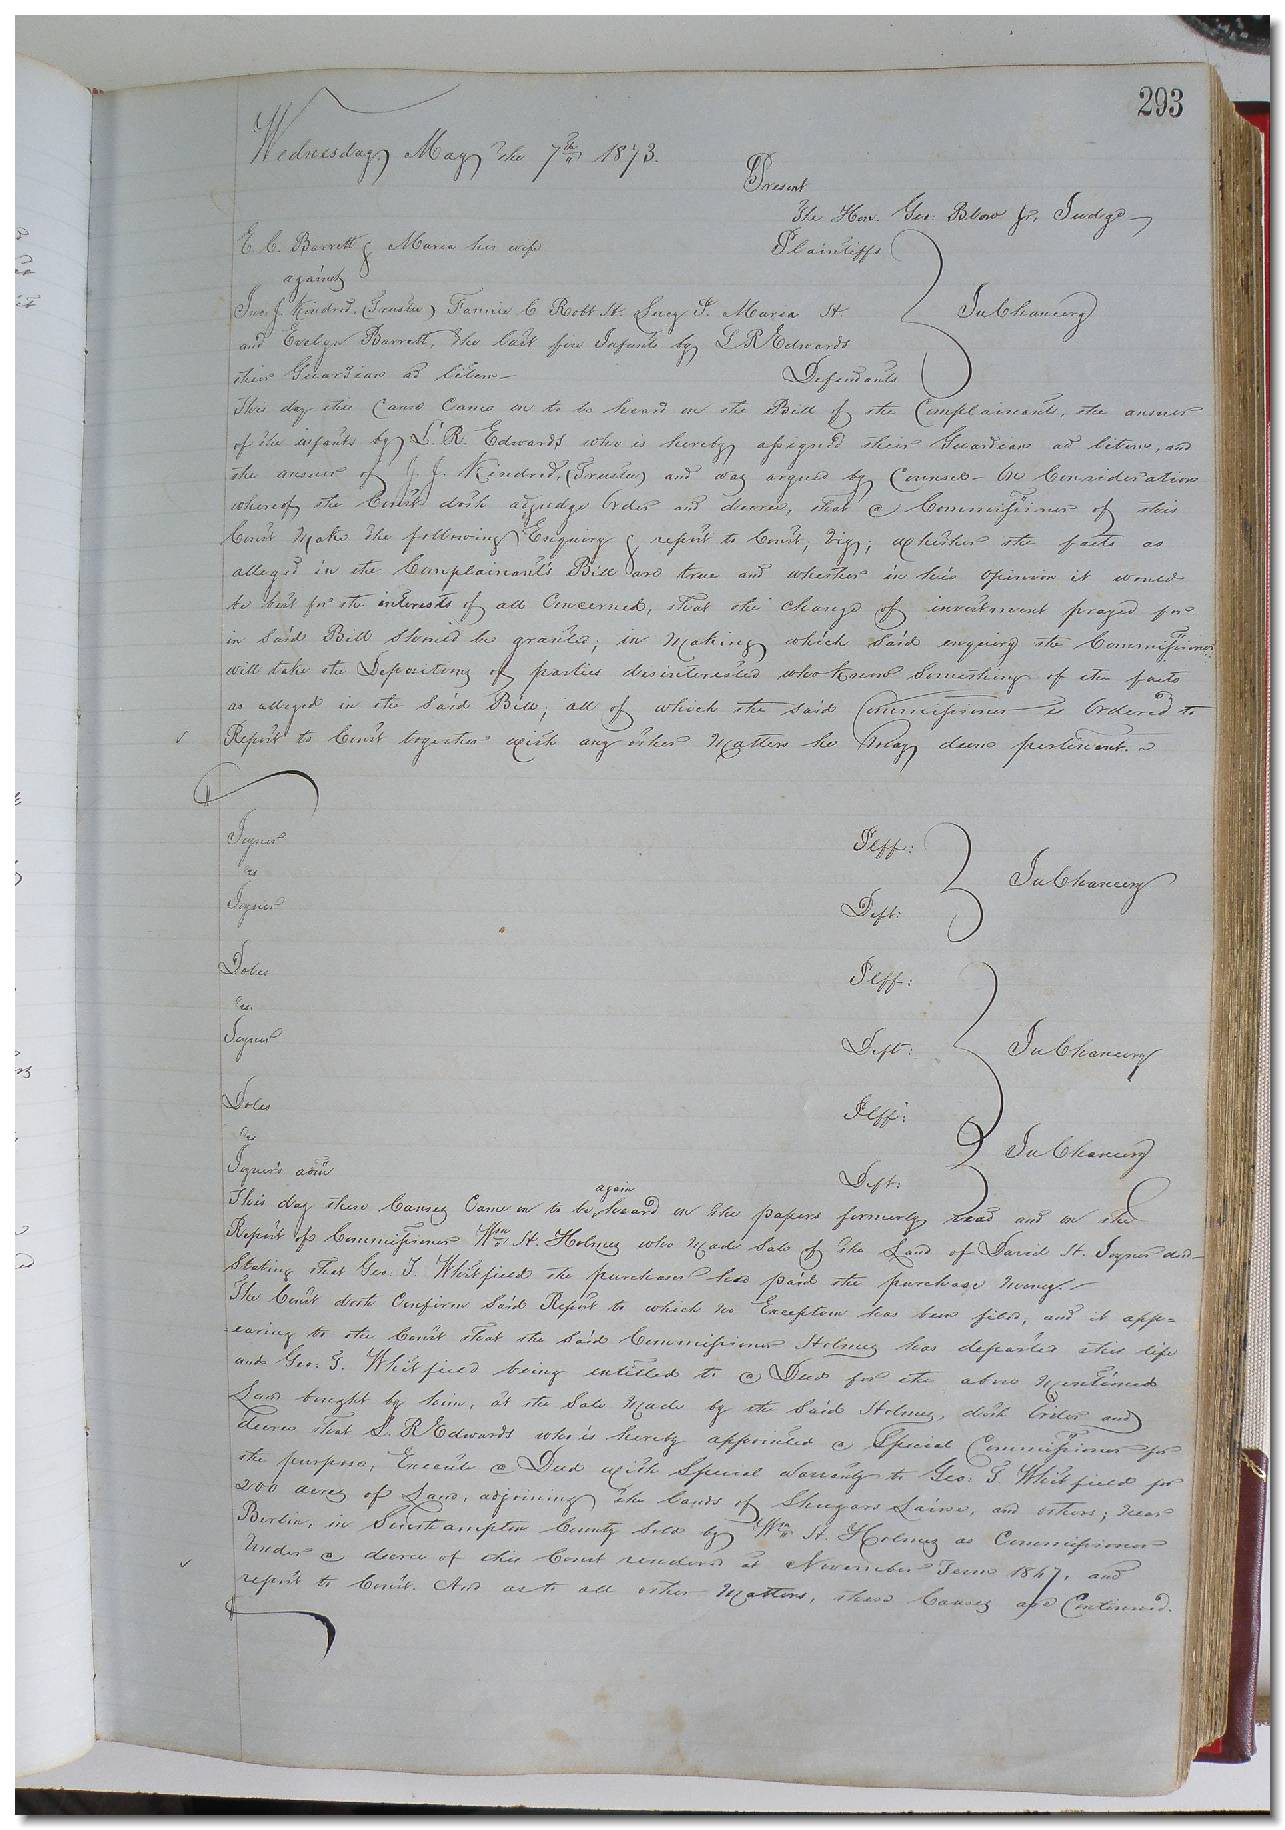 293
Wednesday, May the 7th 1873.
Present
The Hon. Geo: Blow Jr, Judge
E. C. Barrett & Maria his wife Plaintiffs
against
Jno. J. Kindred, (Trustee) Fannie C Robt H. Lucy F. Maria H. In Chancery
and Evelyn Barrett, the last five Infants by L R Edwards
their Guardian ad litem Defendants
This day this Cause Came on to be heard on the Bill of the Complainants, the answer
of the infants by L. R. Edwards who is hereby assigned their Guardian ad litem, and
the answer of J. J. Kindred, (Trustee) and was argued by Counsel. On Consideration
whereof the Court doth adjudge Order and decree, that a Commissioner of this
Court Make the following Enquiry & report to Court, Viz; whether the facts as
alleged in the Complainant's Bill are true and whether in his opinion it would
be best for the interests of all Concerned, that the change of investment prayed for
in said Bill should be granted; in Making which said enquiry the Commissioner
will take the Depositions of parties disinterested who know Something of the facts
as alleged in the said Bill; all of which the said Commissioner is Ordered to
Report to Court together with any other Matters he May deem pertinent.
Joyner Plff:
vs In Chancery
Joyner Deft:
Doles Plff:
vs.
Joyner Deft: In Chancery
Doles Plff:
vs In Chancery
Joyner's admr Deft:
This day these Causes Came on to be again heard on the papers formerly read and on the
Report of Commissioner Wm H. Holmes who Made Sale of the Land of David H. Joyner decd
Stating that Geo: T. Whitfield the purchaser has paid the purchase Money.
The Court doth Confirm Said Report to which no Exception has been filed, and it app=
=earing to the Court that the said Commissioner Holmes has departed this life
and Geo: T. Whitfield being entitled to a Deed for the above Mentioned
Land bought by him, at the Sale Made by the Said Holmes, doth Order and
decree that L. R Edwards who is hereby appointed a Special Commissioner for
the purpose, Execute a Deed with Special Warranty to Geo: T Whitfield for
200 acres of Land, adjoining the lands of Shugars Laine, and others; near
Berlin, in Southampton County Sold by Wm H. Holmes as Commissioner
Under a decree of this Court rendered at November Term 1867, and
report to Court. And as to all other Matters, these Causes are Continued.